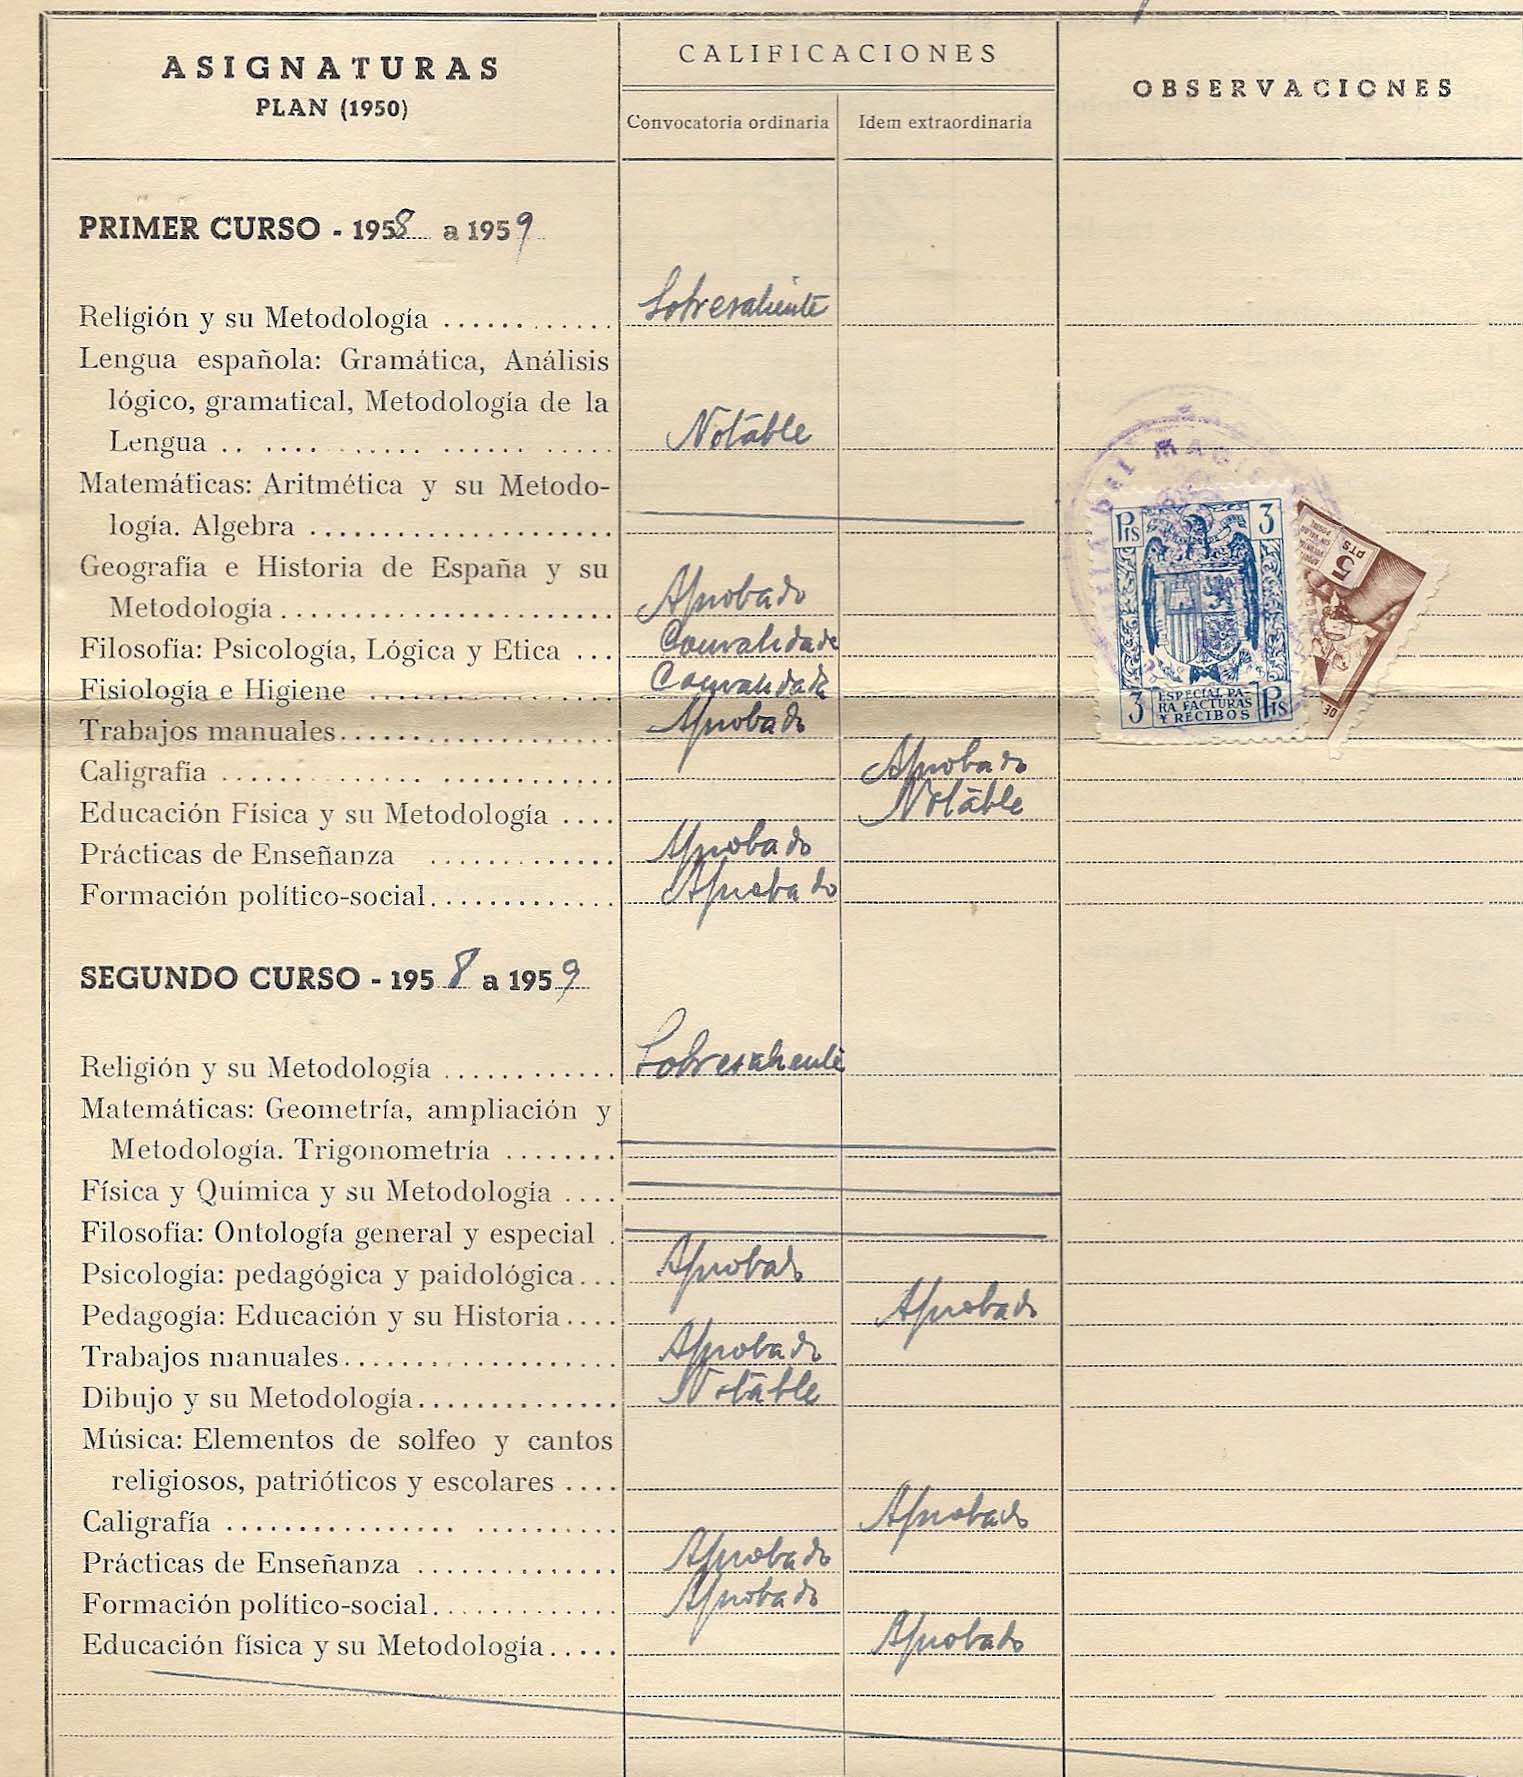 ASIGNATURAS
PLAN (1950)
CALIFICACIONES
Convocatoria ordinaria
Idem extraordinaria
OBSERVACIONES
PRIMER CURSO - 1958 a 1959
Religión y su Metodología ............ Sobresaliente
Lengua española: Gramática, Análisis
lógico, gramatical, Metodología de la
Lengua .. .... ...... ...... ..... Notable
Matemáticas: Aritmética y su Metodo-
logía. Algebra .....................
Geografía e Historia de España y su
Metodología....................... Aprobado
Filosofía: Psicología, Lógica y Etica ... Convalidada
Fisiología e Higiene ................. Convalidada
Trabajos manuales................... Aprobado
Caligrafia ........................... Aprobado
Educación Física y su Metodología .... Notable
Prácticas de Enseñanza ............. Aprobado
Formación político-social............. Aprobado
SEGUNDO CURSO - 1958 a 1959
Religión y su Metodología ............ Sobresaliente
Matemáticas: Geometría, ampliación y
Metodología. Trigonometría ........
Física y Química y su Metodología ....
Filosofía: Ontología general y especial .
Psicología: pedagógica y paidológica... Aprobado
Pedagogía: Educación y su Historia.... Aprobado
Trabajos manuales................... Aprobado
Dibujo y su Metodología.............. Notable
Música: Elementos de solfeo y cantos
religiosos, patrióticos y escolares ....
Caligrafía .......................... Aprobado
Prácticas de Enseñanza .............. Aprobado
Formación político-social............. Aprobado
Educación física y su Metodología..... Aprobado
Pts 3
3 ESPECIAL PA- Pts
RA FACTURAS
Y RECIBOS
5
PTS
DEL MAGIS